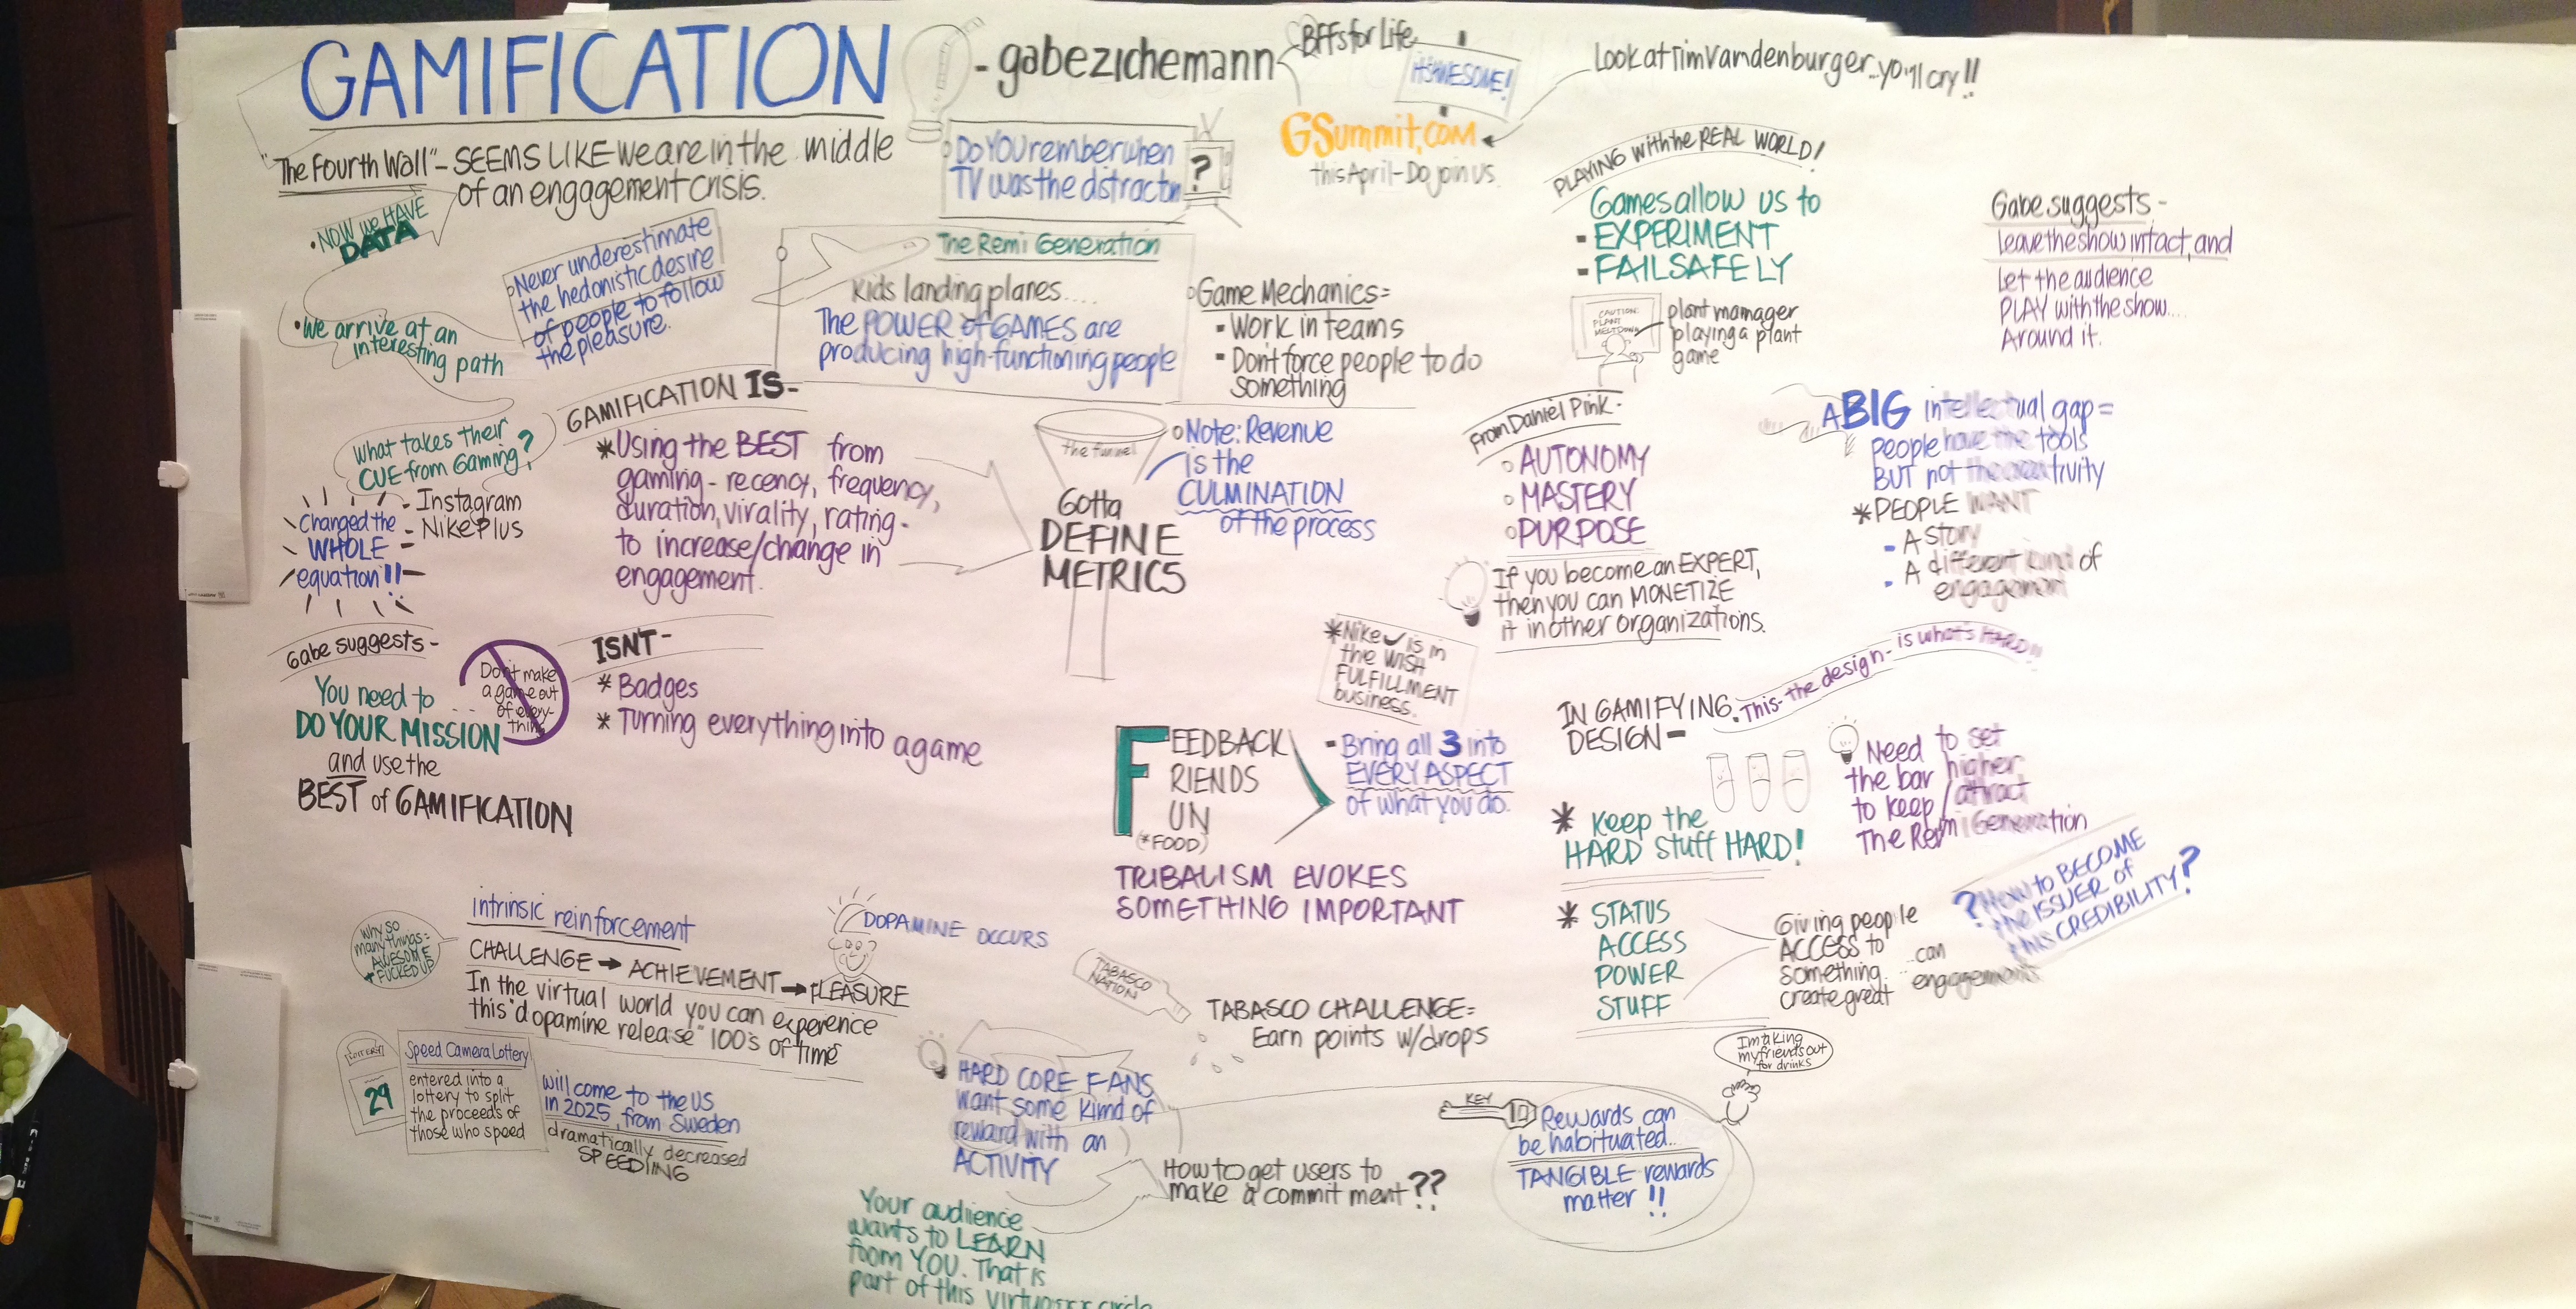 GAMIFICATION
- gabezichemann
BFFs for Life
IT'S AWESOME!
Look at Tim Vandenburger...you'll cry!!
GSummit.com
this April - Do join us.
"The Fourth Wall" - SEEMS LIKE we are in the middle
of an engagement crisis.
Do YOU rember when
TV was the distractn
?
• NOW we HAVE
DATA
Never underestimate
the hedonistic desire
of people to follow
the pleasure.
• We arrive at an
interesting path
What takes their
CUE from Gaming?
- Instagram
- NikePlus
Changed the
WHOLE
equation!!
The Remi Generation
Kids landing planes....
The POWER of GAMES are
producing high-functioning people
Game Mechanics=
▪ Work in teams
▪ Don't force people to do
something
PLAYING with the REAL WORLD!
Games allow us to
- EXPERIMENT
- FAIL SAFELY
CAUTION:
PLANT
MELTDOWN
plant manager
playing a plant
game
Gabe suggests -
leave the show intact, and
let the audience
PLAY with the show....
Around it.
GAMIFICATION IS-
* Using the BEST from
gaming - recency, frequency,
duration, virality, rating -
to increase/change in
engagement.
the funnel
Gotta
DEFINE
METRICS
Note: Revenue
is the
CULMINATION
of the process
from Daniel Pink -
AUTONOMY
MASTERY
PURPOSE
If you become an EXPERT,
then you can MONETIZE
it in other organizations.
A BIG intellectual gap =
people have the tools
BUT not the creativity
* PEOPLE WANT
- A story
- A different kind of
engagement
Gabe suggests -
You need to ...
DO YOUR MISSION
and use the
BEST of GAMIFICATION
Don't make
a game out
of every-
thing
ISN'T -
* Badges
* Turning everything into a game
* Nike is in
the WISH
FULFILLMENT
business.
FEEDBACK
RIENDS
UN
(*FOOD)
- Bring all 3 into
EVERY ASPECT
of what you do.
TRIBALISM EVOKES
SOMETHING IMPORTANT
IN GAMIFYING
DESIGN -
This - the design - is what's HARD!!
* Keep the
HARD stuff HARD!
Need to set
the bar higher
to keep/attract
The Remi Generation
* STATUS
ACCESS
POWER
STUFF
Giving people
ACCESS to
something... can
create great engagement
? How to BECOME
the ISSUER of
this CREDIBILITY?
Why so
many things=
AWESOME
+ FUCKED UP
intrinsic reinforcement
CHALLENGE → ACHIEVEMENT → PLEASURE
DOPAMINE OCCURS
In the virtual world you can experence
this "dopamine release" 100's of time
LOTTERY
29
Speed Camera Lottery
entered into a
lottery to split
the proceeds of
those who speed
will come to the US
in 2025, from Sweden
dramatically decreased
SPEEDING
TABASCO
NATION
TABASCO CHALLENGE=
Earn points w/drops
HARD CORE FANS
want some kind of
reward with an
ACTIVITY
How to get users to
make a commitment??
Your audience
wants to LEARN
from YOU. That is
part of this
KEY
Rewards can
be habituated...
TANGIBLE rewards
matter!!
I'm taking
my friends out
for drinks